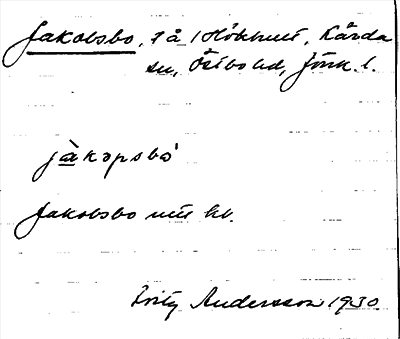 Jakobsbo, på Hökhult, Kärda
sn, Östbo hd, Jönk. l.
jàkɔpsbó
Jakobsbo utt hb.
Fritz Andersson 1930.